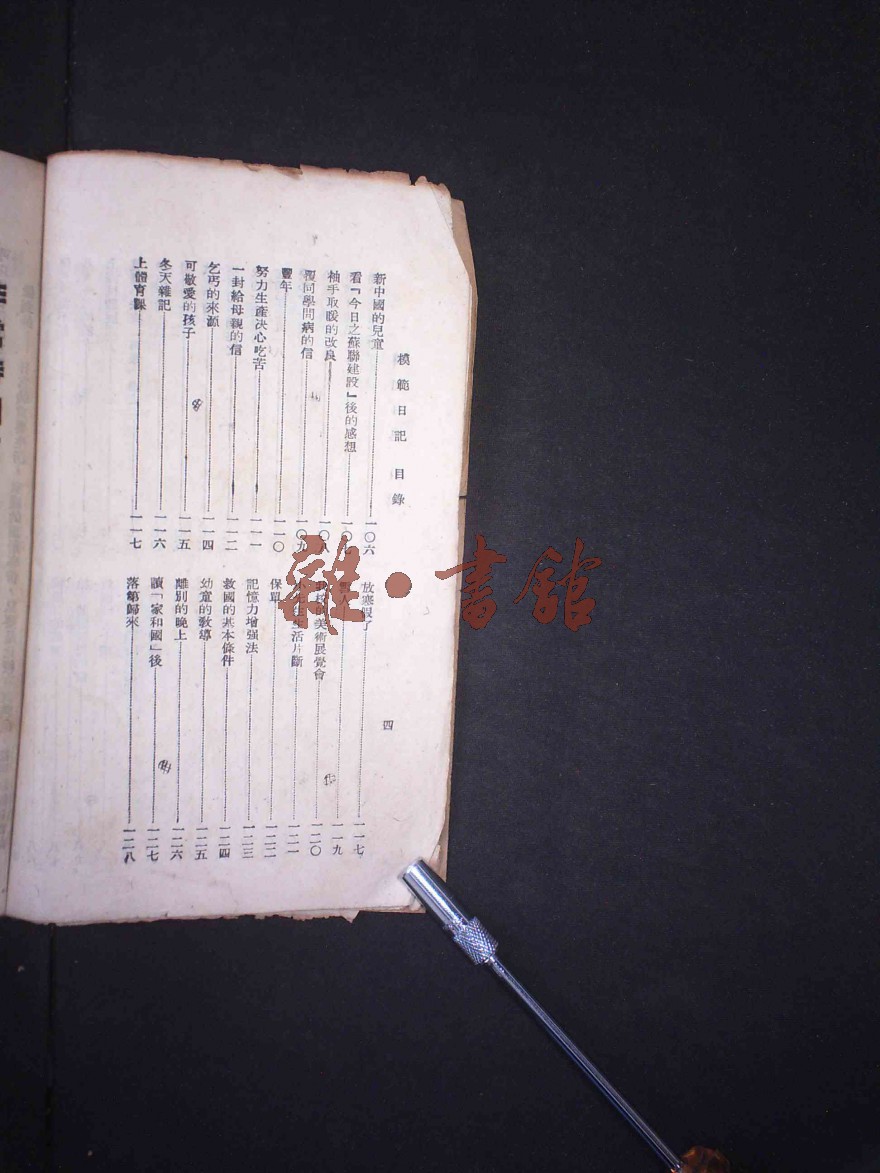 模範日記 目錄
四
新中國的兒童 一〇六
看「今日之蘇聯建設」後的感想 一〇七
袖手取暖的改良 一〇八
覆同學問病的信 一〇九
豐年 一一〇
努力生產決心吃苦 一一一
一封給母親的信 一一二
乞丐的來源 一一四
可敬愛的孩子 一一五
冬天雜記 一一六
上體育課 一一七
放寒假了 一一七
一一九
的美術展覽會 一二〇
生活片斷 一二一
保單 一二二
記憶力增强法 一二三
救國的基本條件 一二四
幼童的教導 一二五
離別的晚上 一二六
讀「家和國」後 一二七
落第歸來 一二八
雜·書館